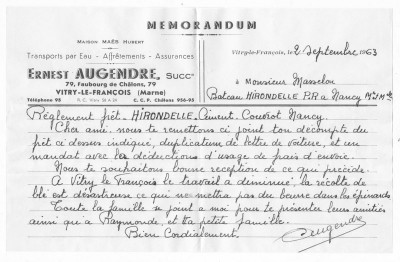 MEMORANDUM
MAISON MAËS HUBERT
Transports par Eau - Affrètements - Assurances
ERNEST AUGENDRE, SUCCr
79, Faubourg de Châlons, 79
VITRY-LE-FRANÇOIS (Marne)
Téléphone 95 R. C. Vitry C. C. P. Châlons 956-93
Vitry-le-François, le 2 Septembre 1963
à Monsieur Masselon
Bateau HIRONDELLE P.R à Nancy Mthe Mlle
Règlement frêt. HIRONDELLE. Ciment. Couvrot Nancy.
Cher ami, nous te remettons ci joint ton décompte du
frêt ci dessus indiqué, duplication de lettre de voiture, et un
mandat avec la déductions d'usage de frais d'envoie.
Nous te souhaitons bonne reception de ce qui précède.
A Vitry le François le travail a diminué, la récolte de
blé est désastreuse ce qui ne mettra pas du beurre dans les épinards
Toute la famille se joint a moi pour te présenter leurs amitiés
ainsi qu'a Raymonde, et ta petite famille.
Bien Cordialement,
Augendre